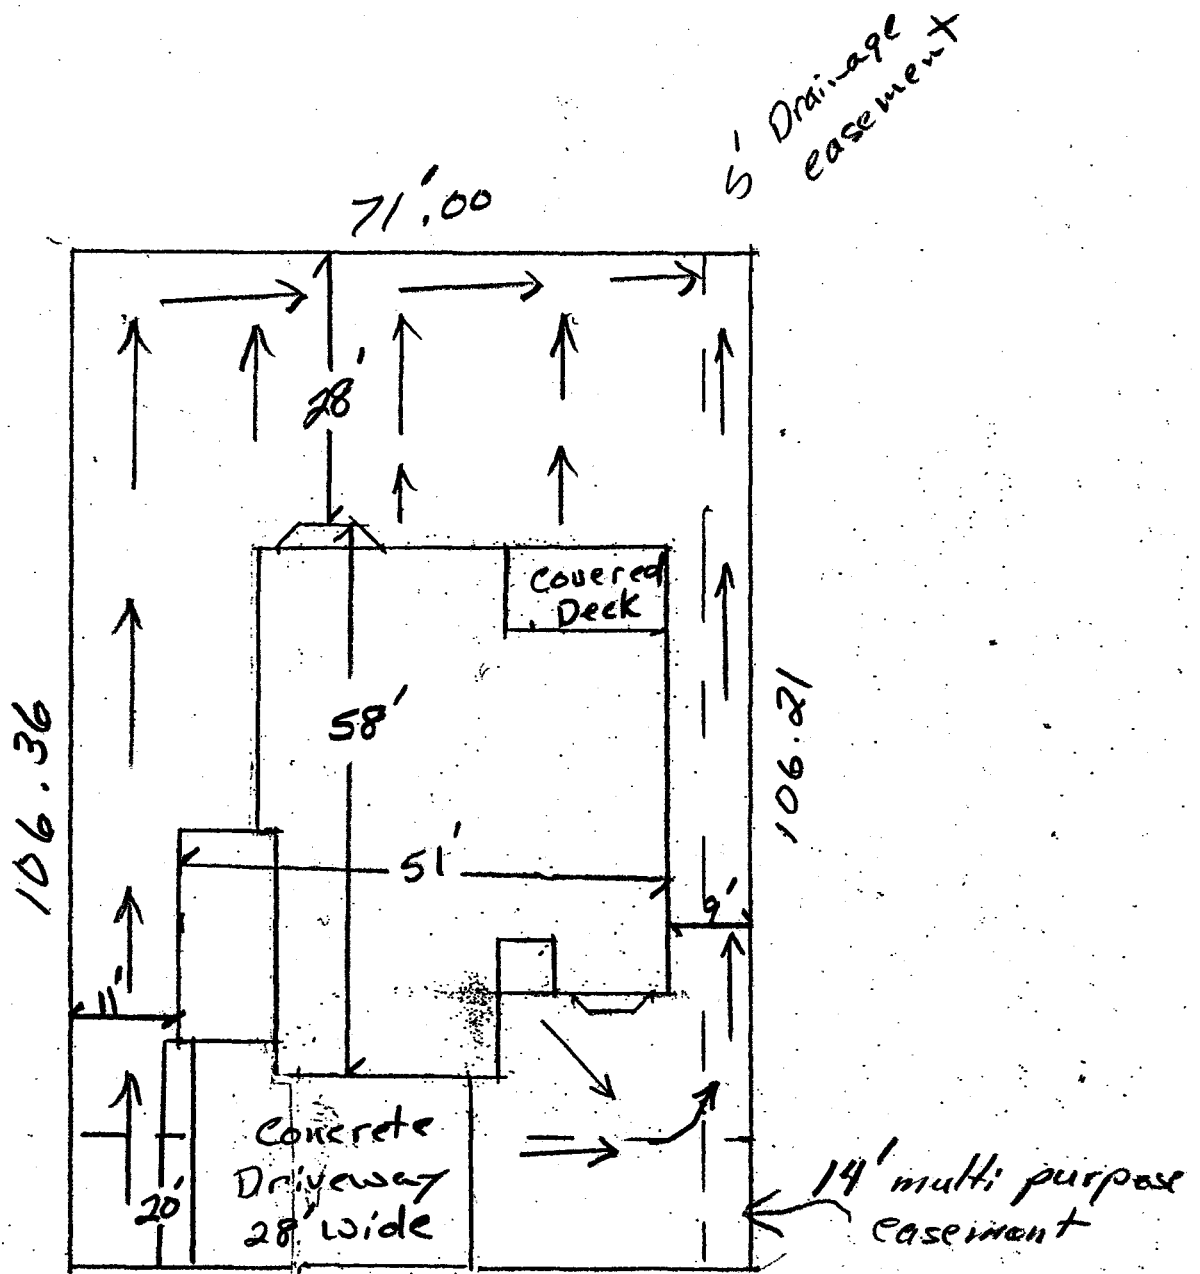 5' Drainage
easement
71'.00
28'
Covered
Deck
106.36
58'
106.21
51'
9'
11'
Concrete
Driveway
28' wide
20'
14' multi purpose
easement